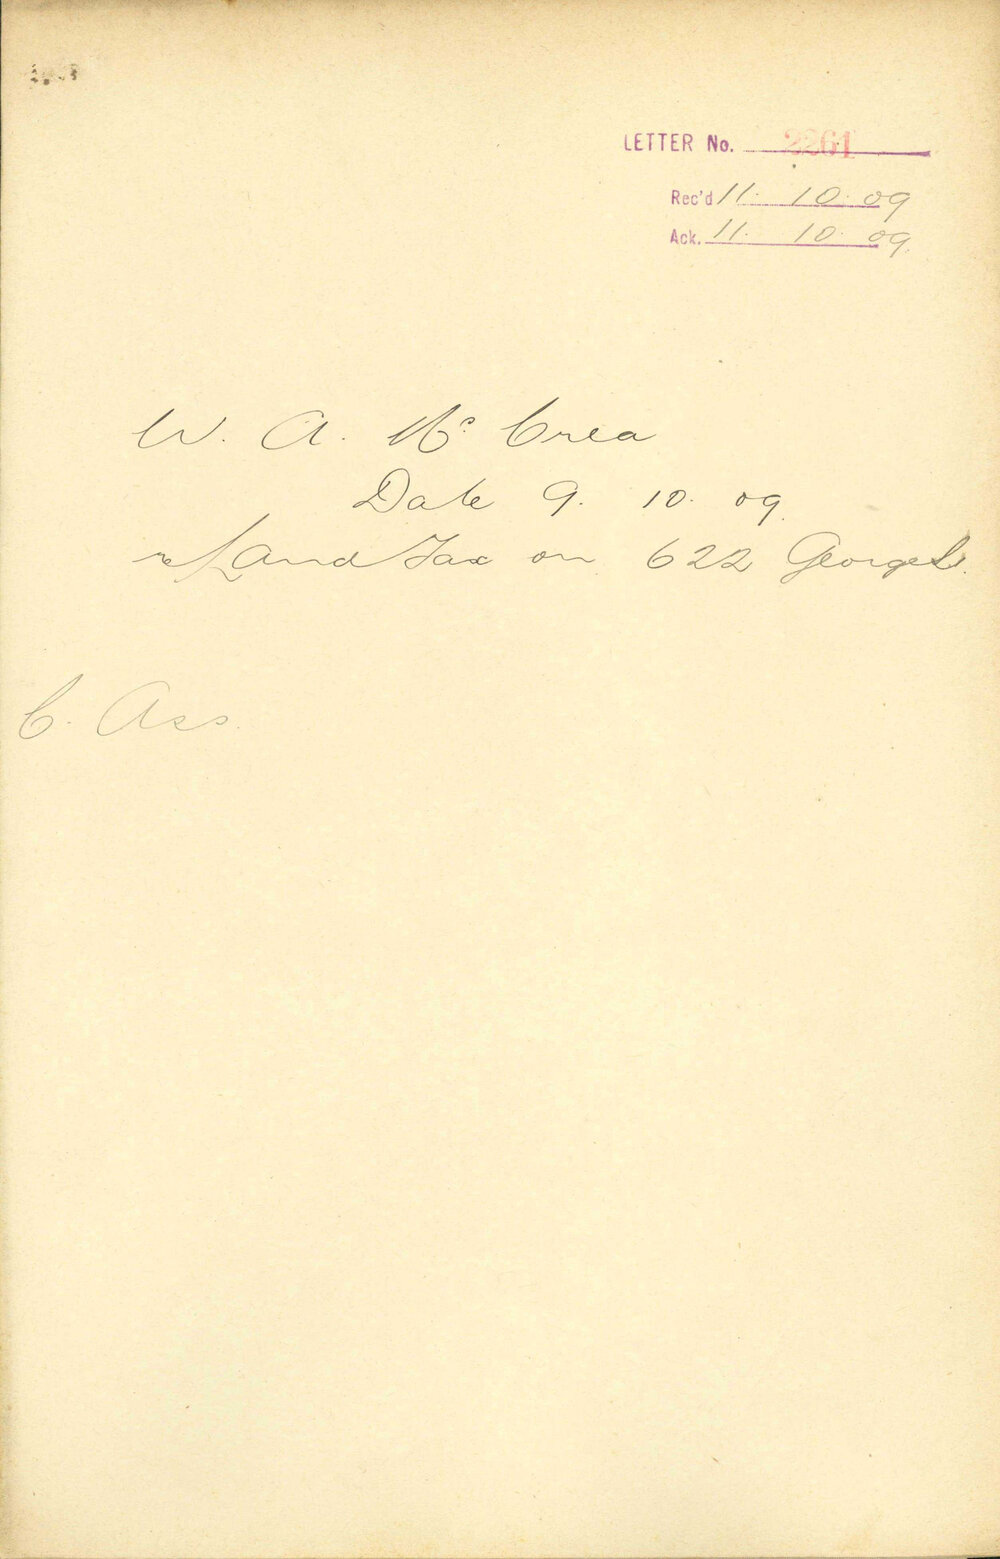 LETTER No. 2261
Rec'd 11. 10. 09
Ack. 11. 10. 09.
W. A. Mc Crea
Date 9. 10. 09.
re Land Tax on 622 George St.
C. Ass.